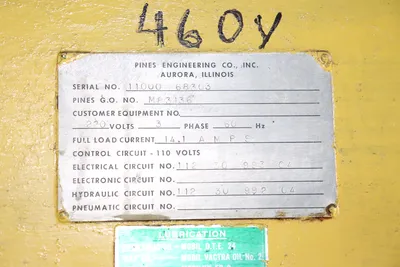 460V
PINES ENGINEERING CO., INC.
AURORA, ILLINOIS
SERIAL NO. 11000 68303
PINES G.O. NO.
CUSTOMER EQUIPMENT NO.
230 VOLTS 3 PHASE 60 Hz
FULL LOAD CURRENT 14.1 AMPE
CONTROL CIRCUIT - 110 VOLTS
ELECTRICAL CIRCUIT NO. 112 30
ELECTRONIC CIRCUIT NO.
HYDRAULIC CIRCUIT NO. 112 30 892
PNEUMATIC CIRCUIT NO.
LUBRICATION
MOBIL D.T.E. 24
MOBIL VACTRA OIL No. 2